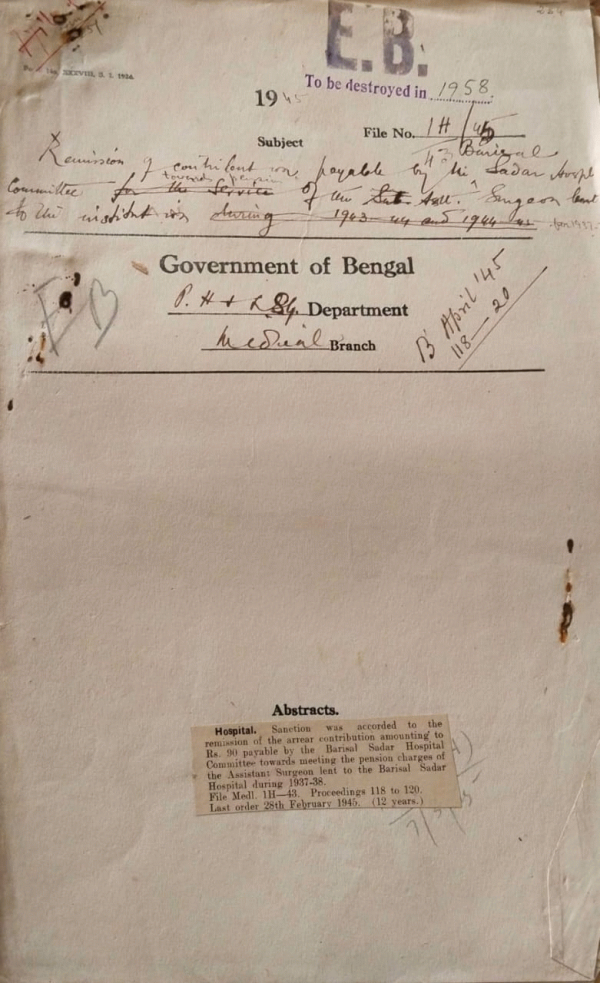 E.B.
To be destroyed in 1958.
1945
Subject
File No. 1H/45
43 Barisal
Remission of contribution payable by the Sadar Hospl
towards pension
Committee for the Service of the Sub. Asst. Surgeon lent
to the institution during 1943-44 and 1944-45
Government of Bengal
P. H & L.S.G. Department
Medical Branch
B April '45
118—20
EB
Abstracts.
Hospital. Sanction was accorded to the
remission of the arrear contribution amounting to
Rs. 90 payable by the Barisal Sadar Hospital
Committee towards meeting the pension charges of
the Assistant Surgeon lent to the Barisal Sadar
Hospital during 1937-38.
File Medl. 1H—43. Proceedings 118 to 120.
Last order 28th February 1945. (12 years.)